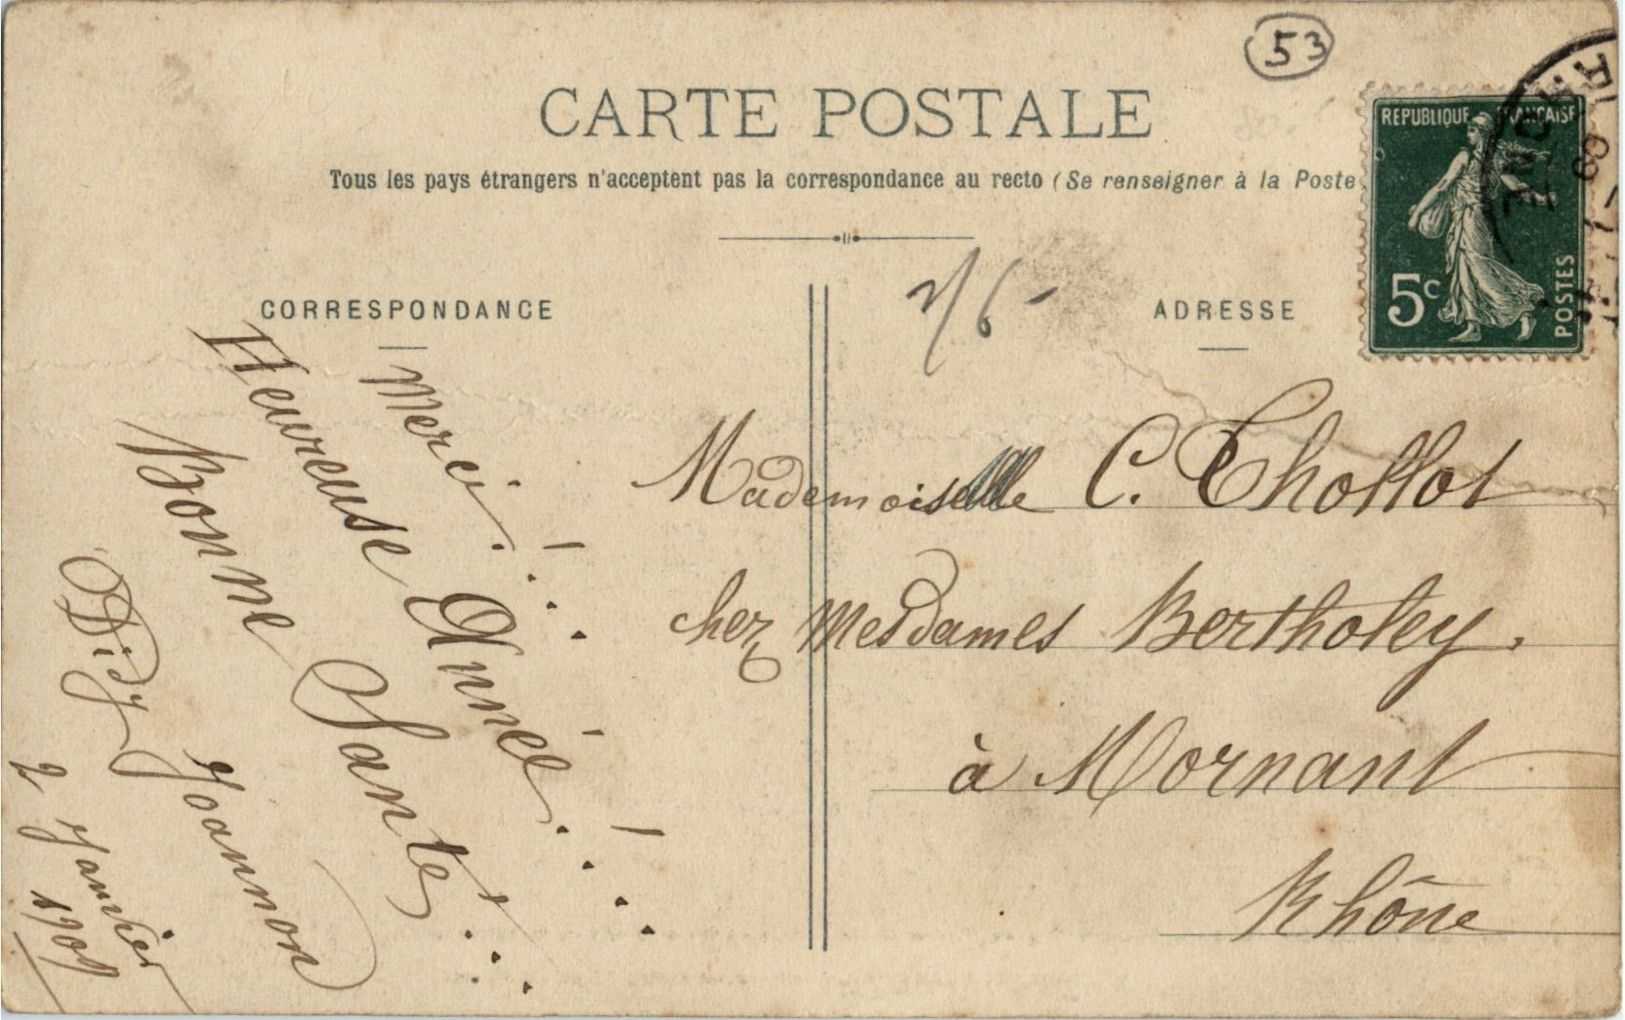 53
CARTE POSTALE
Tous les pays étrangers n'acceptent pas la correspondance au recto (Se renseigner à la Poste
REPUBLIQUE FRANÇAISE
5c
POSTES
CORRESPONDANCE
Merci!...
Heureuse Année!...
Bonne Santé!...
Didy Joannon
2 Janvier
1909
ADRESSE
Mademoiselle C. Thollot
chez Mesdames Bertholey.
à Mornant
Rhône